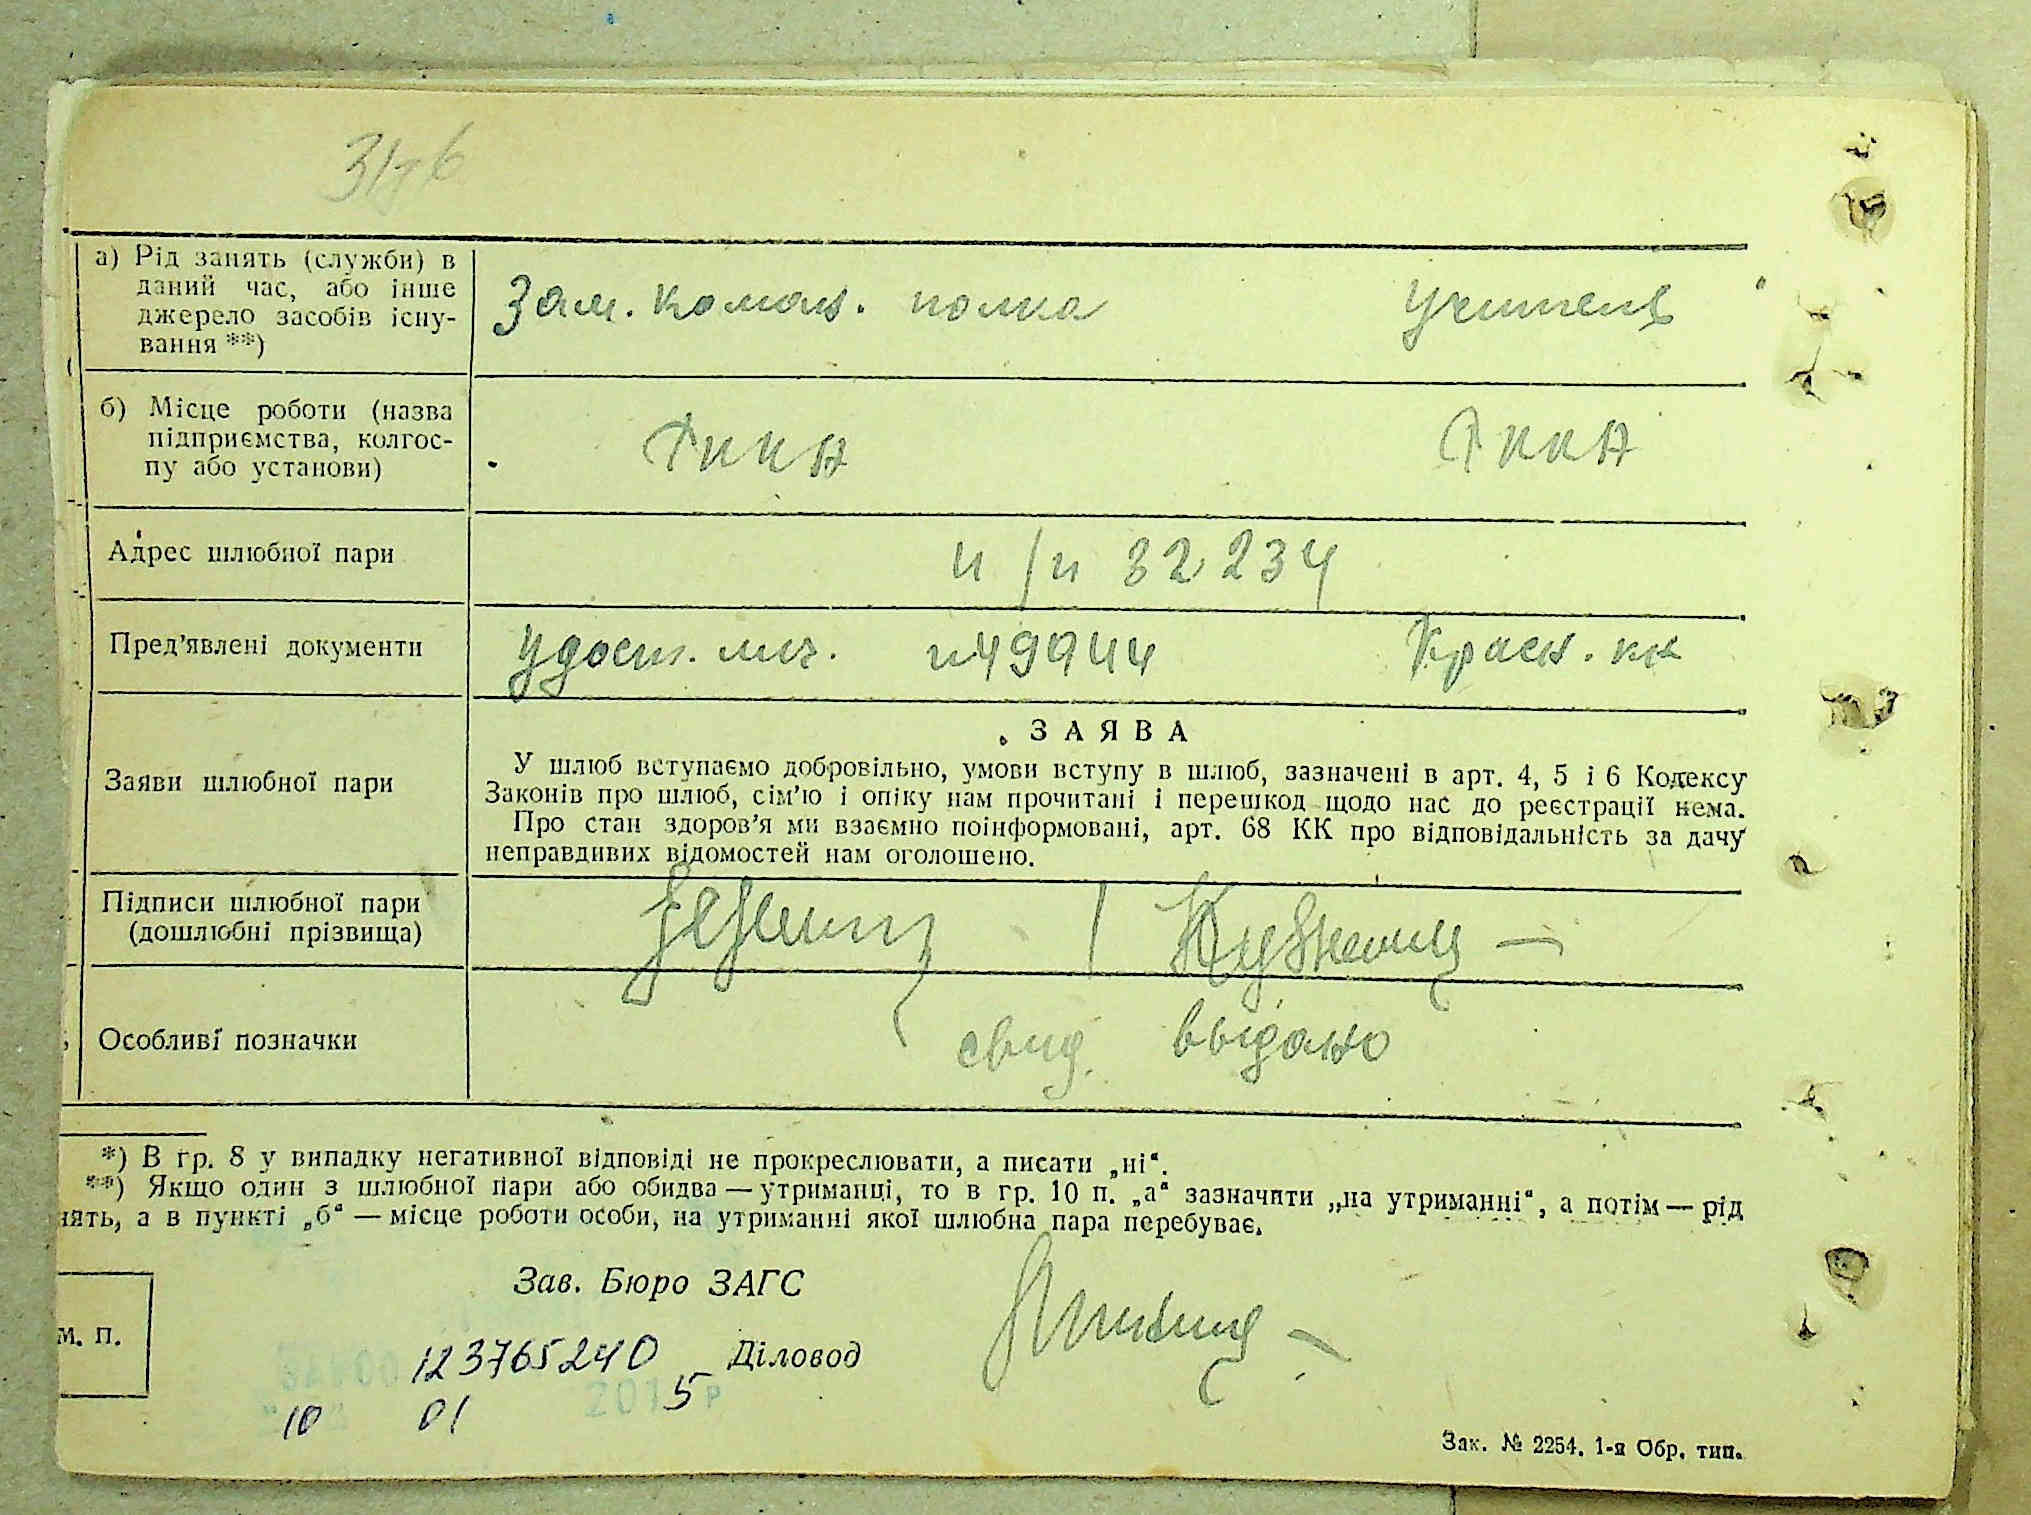 а) Рід занять (служби) в
даний час, або інше
джерело засобів існу-
вання **)
Зам. коман. полка
Учитель
б) Місце роботи (назва
підприємства, колгос-
пу або установи)
РККА
РККА
Адрес шлюбної пари
п/п 32234
Пред'явлені документи
Удост. лич. n49944
Красн. кн
Заяви шлюбної пари
ЗАЯВА
У шлюб вступаємо добровільно, умови вступу в шлюб, зазначені в арт. 4, 5 і 6 Кодексу
Законів про шлюб, сім'ю і опіку нам прочитані і перешкод щодо нас до реєстрації нема.
Про стан здоров'я ми взаємно поінформовані, арт. 68 КК про відповідальність за дачу
неправдивих відомостей нам оголошено.
Підписи шлюбної пари
(дошлюбні прізвища)
Особливі позначки
свид. выдано
*) В гр. 8 у випадку негативної відповіді не прокреслювати, а писати „ні“.
**) Якщо один з шлюбної пари або обидва — утриманці, то в гр. 10 п. „а“ зазначити „на утриманні“, а потім — рід
нять, а в пункті „б“ — місце роботи особи, на утриманні якої шлюбна пара перебуває.
Зав. Бюро ЗАГС
М. П.
123765240
Діловод
10 01 2015 р
Зак. № 2254. 1-я Обр. тип.